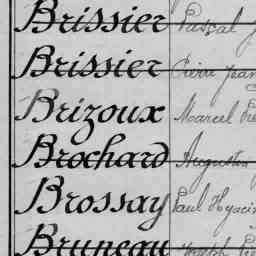 Brissier Pascal
Brissier Pierre Jean
Brizoux Marcel
Brochard Augustin
Brossay Paul Hyacin
Bruneau Joseph